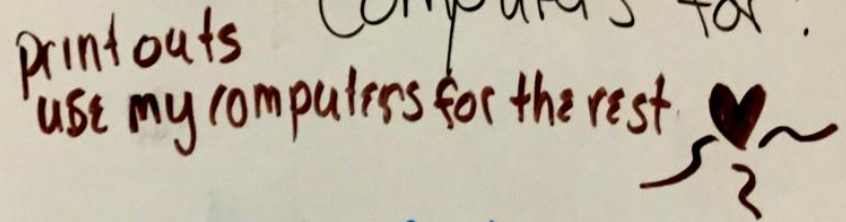 computers for?
printouts
use my computers for the rest